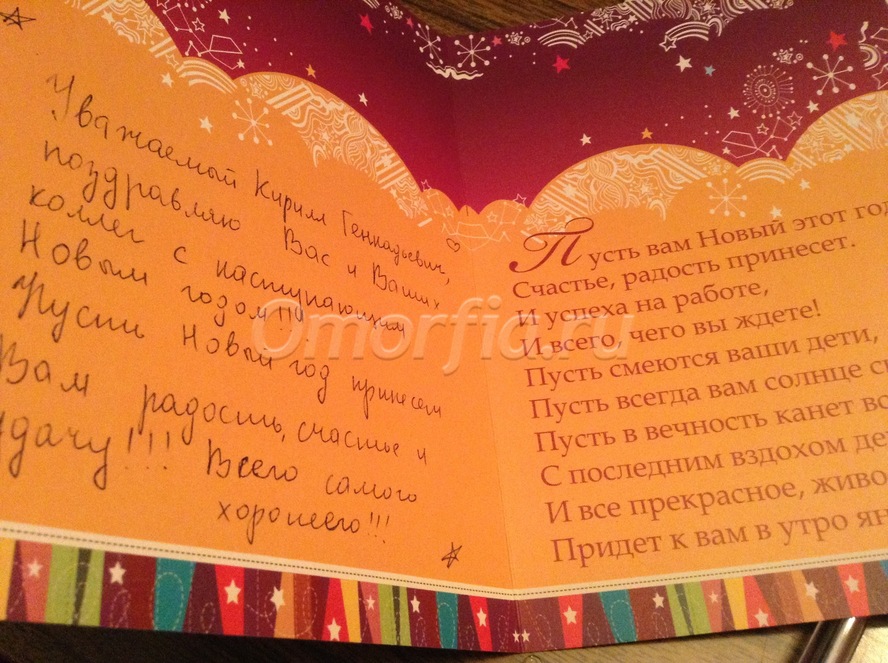 Уважаемый Кирилл Геннадьевич,
поздравляю Вас и Ваших
коллег с наступающим
Новым годом!!!
Пусть Новый год принесет
Вам радость, счастье и
удачу!!! Всего самого
хорошего!!!
Пусть вам Новый этот год
Счастье, радость принесет.
И успеха на работе,
И всего, чего вы ждете!
Пусть смеются ваши дети,
Пусть всегда вам солнце
Пусть в вечность канет
С последним вздохом
И все прекрасное,
Придет к вам в утро
Omorfia.ru